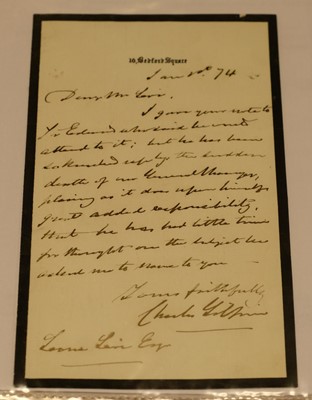 10, Bedford Square
Jan 1st. 74
Dear Mr Levi.
I gave your note to
Sr Edward who said he would
attend to it; but he has been
so by the sudden
death of our General Manager,
placing as it does upon himself
great added responsibility,
that he has had little time
for thought on the subject he
asked me to name to you —
Yours faithfully
Charles Gilpin
Leone Levi Esq